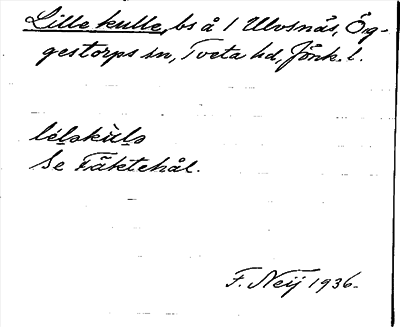 Lille kulle, bs å 1 Ulvsnäs, Ög-
gestorps sn, Tveta hd, Jönk. l.
lélskùls
Se Fäktehål.
F. Neij 1936.